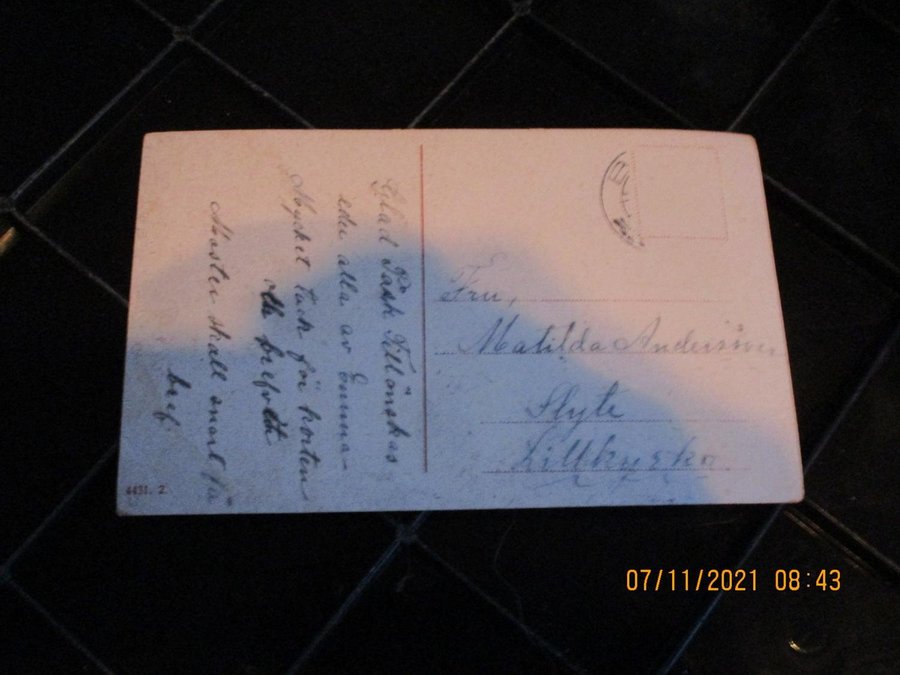 Glad Påsk Tillönskas
eder alla av Emma
Mycket tack för korten
och brefvet
Moster skall snart få
bref
Fru,
Matilda Andersson
Slyte
Lillkyrka
4431. 2.
07/11/2021 08:43